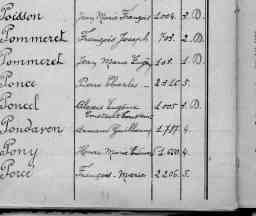 Poisson Jean Marie François 1.004. 3. D.
Pommeret François Joseph 705. 2. D.
Pommeret Jean Marie 108. 1. D.
Ponce Pierre Charles 5.
Poncel Alexis Eugène 1.005 3. D.
Pondaven Guillaume 1.787 4.
Pony Marie 1.600 4.
Porce François-Marie 2.206. 5.